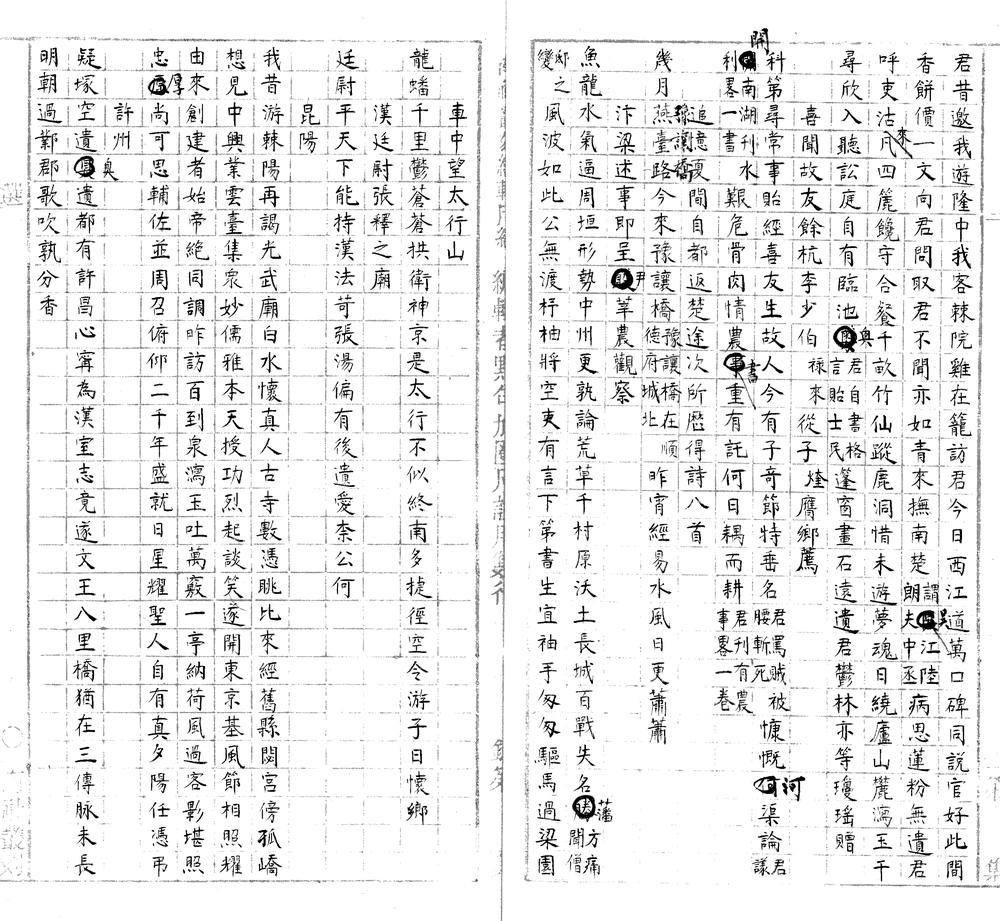 君昔邀我遊隆中我客棘院雞在籠訪君今日西江道萬口碑同說官好此間
香餅價一文向君問取君不聞亦如青來撫南楚謂吳江陸朗夫中丞病思蓮粉無遺君
呼吏沽來凡四簏饞守合餐千畝竹仙蹤鹿洞惜未遊夢魂日繞廬山麓瀉玉千
尋欣入聽訟庭自有臨池奧君自書格言貽士民蓬窗畫石遠遺君鬱林亦等瓊瑤贈
喜聞故友餘杭李少伯祿來從子烓膺鄉薦
科第尋常事貽經喜友生故人今有子奇節特垂名君罵賊被腰斬死慷慨河渠論君議
開南湖刊水利畧一書艱危骨肉情農書重有託何日耦而耕君刊有農事畧一卷
追憶夏間自都返楚途次所歷得詩八首
豫讓橋
幾月燕臺路今來豫讓橋豫讓橋在順德府城北昨宵經易水風日更蕭蕭
汴梁述事即呈尹莘農觀察
魚龍水氣逼周垣形勢中州更孰論荒草千村原沃土長城百戰失名藩方痛聞僧
邸之變風波如此公無渡杼柚將空吏有言下第書生宜袖手匆匆驅馬過梁園
車中望太行山
龍蟠千里鬱蒼蒼拱衛神京是太行不似終南多捷徑空令游子日懷鄉
漢廷尉張釋之廟
廷尉平天下能持漢法苛張湯偏有後遺愛柰公何
昆陽
我昔游棘陽再謁光武廟白水懷真人古寺數憑眺比來經舊縣閟宮傍孤嶠
想見中興業雲臺集衆妙儒雅本天授功烈起談笑遂開東京基風節相照耀
由來創建者始帝絕同調昨訪百到泉瀉玉吐萬竅一亭納荷風過客影堪照
忠厚尚可思輔佐並周召俯仰二千年盛就日星耀聖人自有真夕陽任憑弔
許州
疑塚空遺臭遺都有許昌心甯為漢室志竟遂文王八里橋猶在三傳脉未長
明朝過鄴郡歌吹孰分香